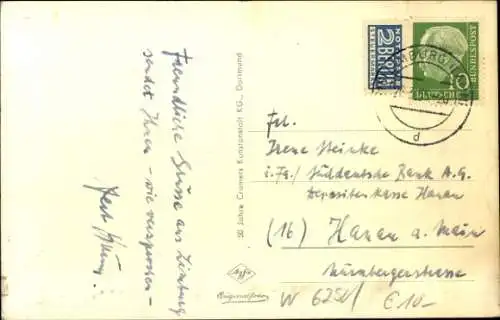 Freundliche Grüsse aus Limburg
sendet Ihnen – wie versprochen –
50 Jahre Cramers Kunstanstalt KG., Dortmund
Agfa
Originalfoto
NOTOPFER
2 BERLIN
STEUERMARKE
10
DEUTSCHE
BUNDESPOST
d
Frl.
Irene Steinke
i. Fa. Süddeutsche Bank A.G.
Depositenkasse Hanau
(16) Hanau a. Main
Nürnbergerstrasse
W 6251
€10-